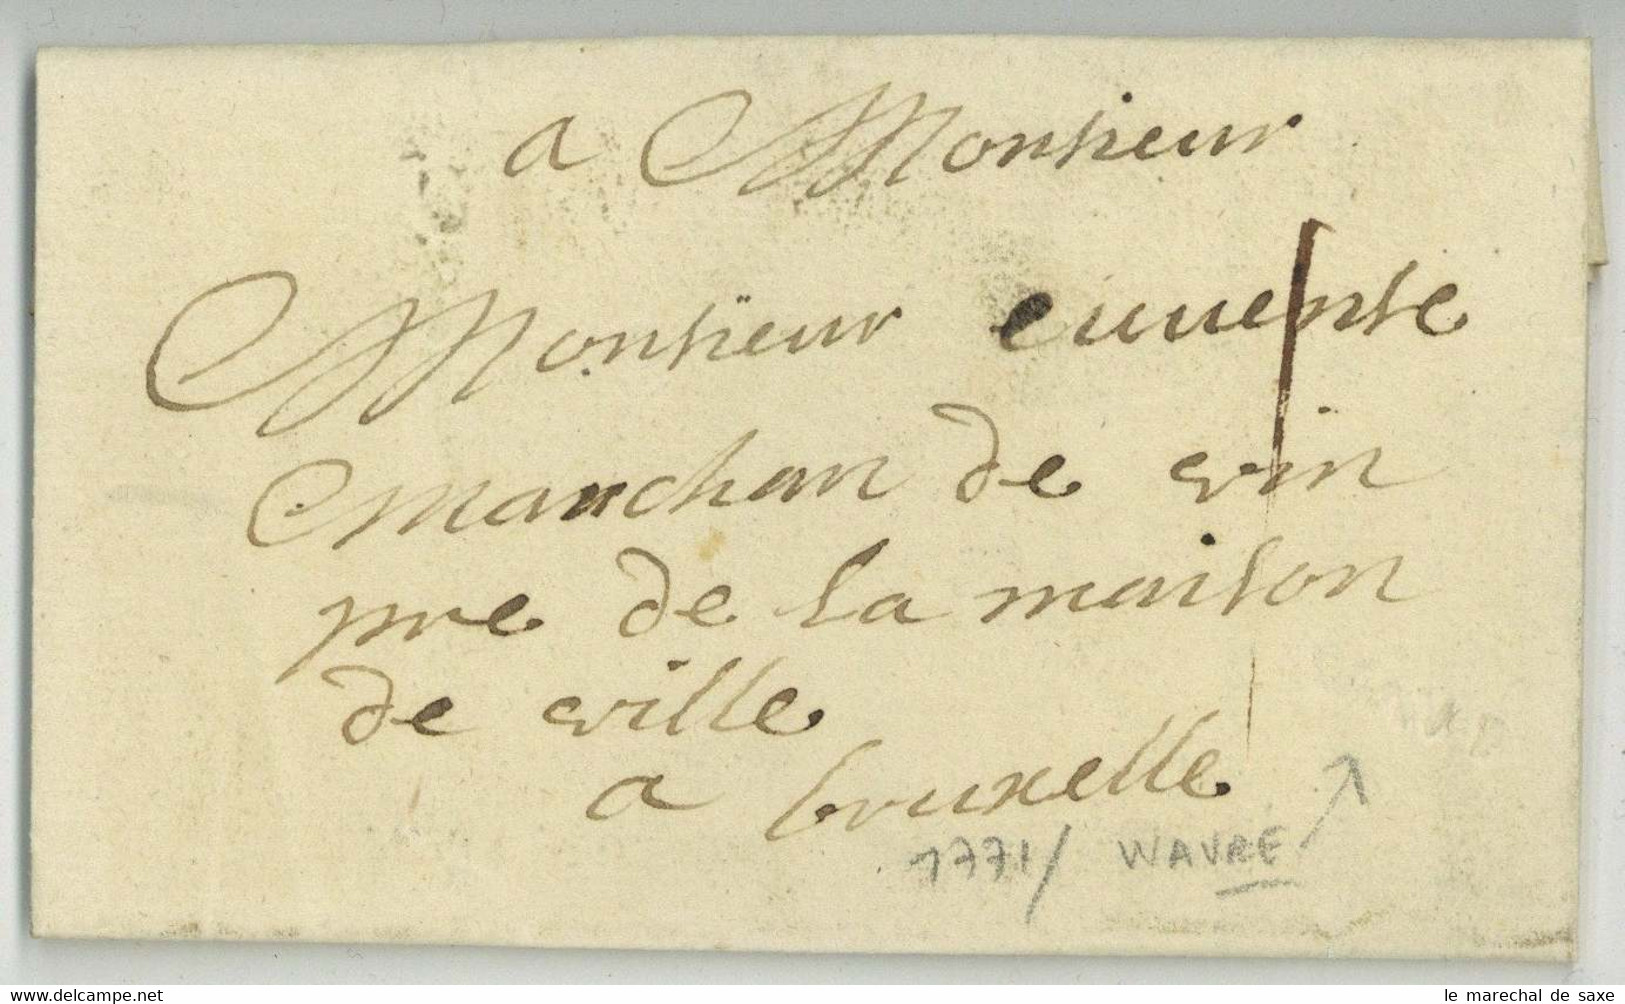 a Monsieur
Monsieur
marchan de vin
pre de la maison
de ville
a bruxelle
1771/ WAVRE
www.delcampe.net
le marechal de saxe